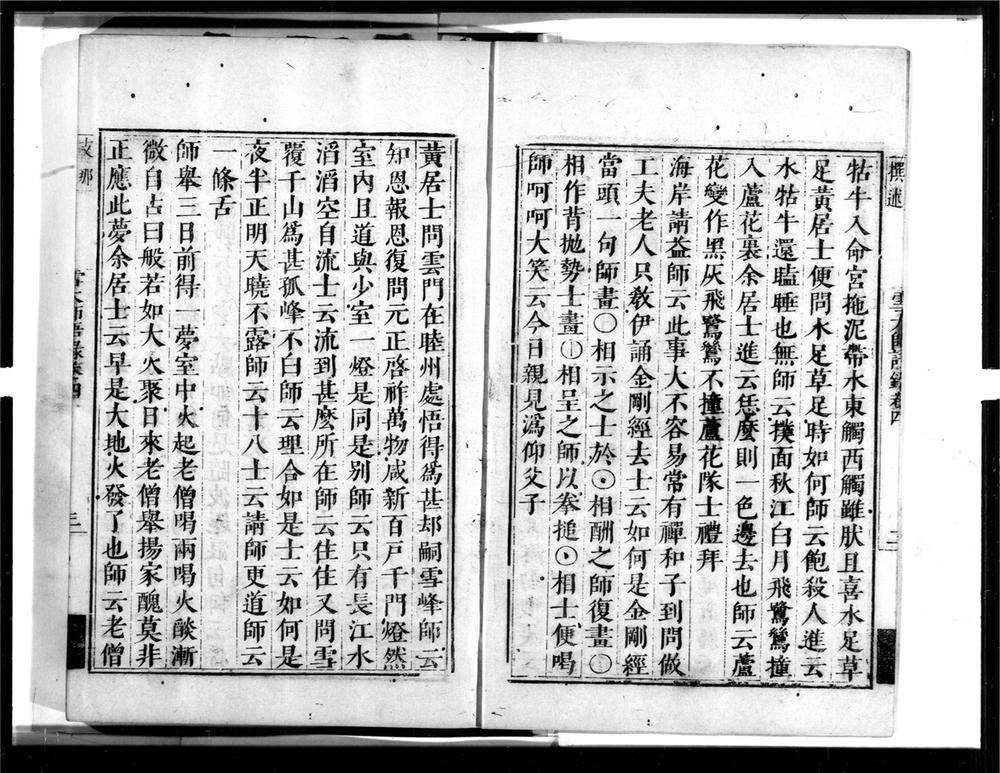 撰述
牯牛入命宮拖泥帶水東觸西觸雖狀且喜水足草
足黃居士便問水足草足時如何師云飽殺人進云
水牯牛還瞌睡也無師云撲面秋江白月飛鷺鷥撞
入蘆花裏余居士進云恁麼則一色邊去也師云蘆
花變作黑灰飛鷺鷥不撞蘆花隊士禮拜
海岸請益師云此事大不容易常有禪和子到問做
工夫老人只敎伊誦金剛經去士云如何是金剛經
當頭一句師畫〇相示之士於⊙相酬之師復畫〇
相作背拋勢士畫⦶相呈之師以拳搥⊙相士便喝
師呵呵大笑云今日親見潙仰父子
黃居士問雲門在睦州處悟得爲甚却嗣雪峰師云
知恩報恩復問元正啓祚萬物咸新百戶千門燈然
室內且道與少室一燈是同是別師云只有長江水
滔滔空自流士云流到甚麼所在師云住住又問雪
覆千山爲甚孤峰不白師云理合如是士云如何是
夜半正明天曉不露師云十八士云請師更道師云
一條舌
師舉三日前得一夢室中火起老僧喝兩喝火燄漸
微自占曰般若如大火聚日來老僧舉揚家醜莫非
正應此夢余居士云早是大地火發了也師云老僧
支那